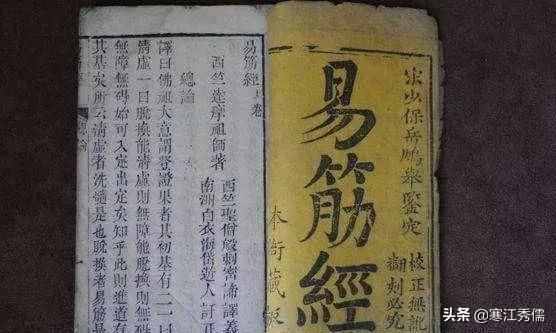 宋少保岳鵬舉鑒定
校正無訛
翻刻必究
易筋經
本衙藏
易筋經上卷
西竺達摩祖師著
西竺聖僧般剌密諦譯義
南洲白衣海遊人訂正
總論
譯曰佛祖大意謂登證果者其初基有二一曰
清虛一曰脫換能清虛則無障能脫換則無
無障無碍始可入定出定矣知乎此則進道有
其基矣所云清虛者洗髓是也脫換者易筋是
總論
頭条 @寒江秀儒